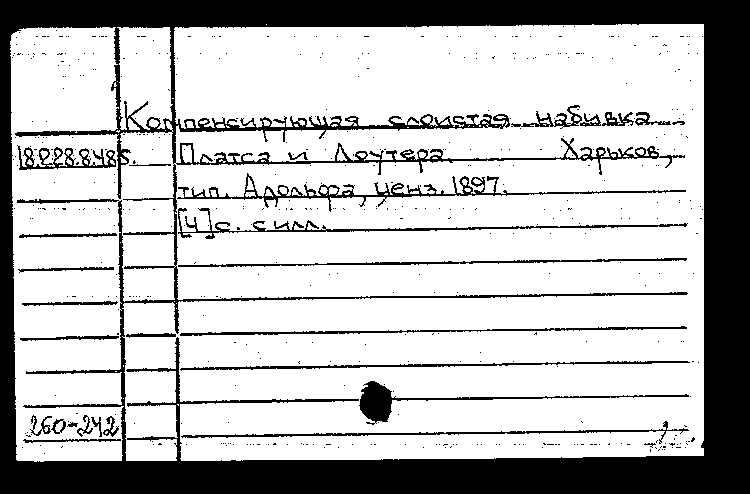 Компенсирующая слоистая набивка
18.228.8.485. Платса и Лоутера. Харьков,
тип. Адольфа, ценз. 1897.
[4] с. с илл.
260-242